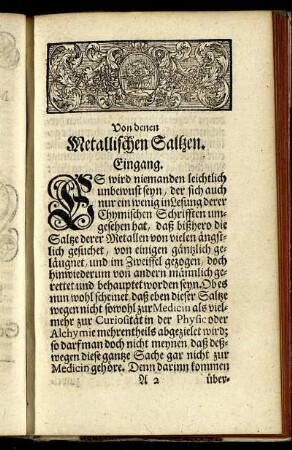 Von denen
Metallischen Saltzen.
Eingang.
ES wird niemanden leichtlich
unbewust seyn, der sich auch
nur ein wenig in Lesung derer
Chymischen Schrifften um-
gesehen hat, daß bißhero die
Saltze derer Metallen von vielen ängst-
lich gesuchet, von einigen gäntzlich ge-
läugnet, und im Zweiffel gezogen, doch
hinwiederum von andern männlich ge-
rettet und behauptet worden seyn. Ob es
nun wohl scheinet daß eben dieser Saltze
wegen nicht sowohl zur Medicin als viel-
mehr zur Curiosität in der Physic oder
Alchymie mehrentheils abgezielet wird;
so darf man doch nicht meynen, daß deß-
wegen diese gantze Sache gar nicht zur
Medicin gehöre. Denn darinn kommen
A 2 über-